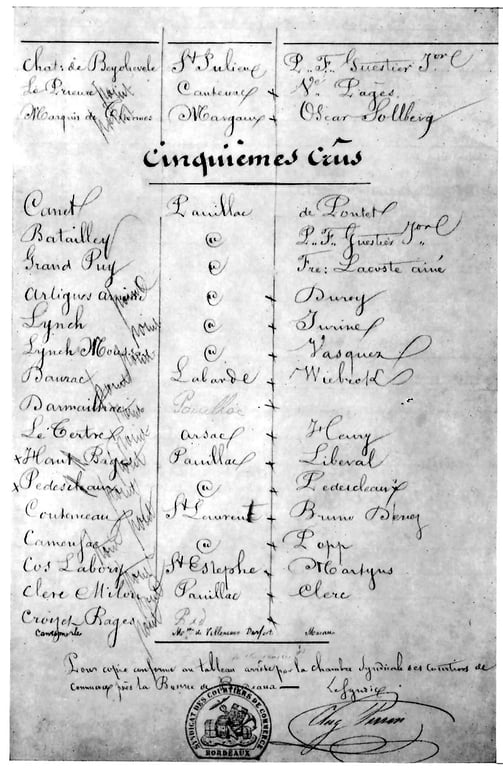 Chat: de Beychevele St Julien P.. F.. Guestier Jor
Le Prieuré Cantenac Ve Pages
Marquis de Thermes Margaux Oscar Sollberg
Cinquièmes Crûs
Canet Pauillac de Pontet
Batailley @ P.. F.. Guestier Jor
Grand Puy @ Fre: Lacoste ainé
Artigues Arnaud @ Duroy
Lynch @ Jurine
Lynch Moussas @ Vasquez
Dauzac Labarde Wiebrok
Darmailhac Pauillac
Le Tertre Arsac Henry
Haut Bages Pauillac Liberal
Pedesclaux @ Pedesclaux
Coutenceau St Laurent Bruno Devez
Camensac @ Popp
Cos Labory St Estephe Martyns
Clerc Milon Pauillac Clerc
Croizet Bages
Cantemerle Me de Villeneuve Durfort Macau
Pour copie conforme au tableau arrêté par la chambre Syndicale des Courtiers de
Commerce près la Bourse de Bordeaux
Le Syndic
SYNDICAT DES COURTIERS DE COMMERCE
BORDEAUX